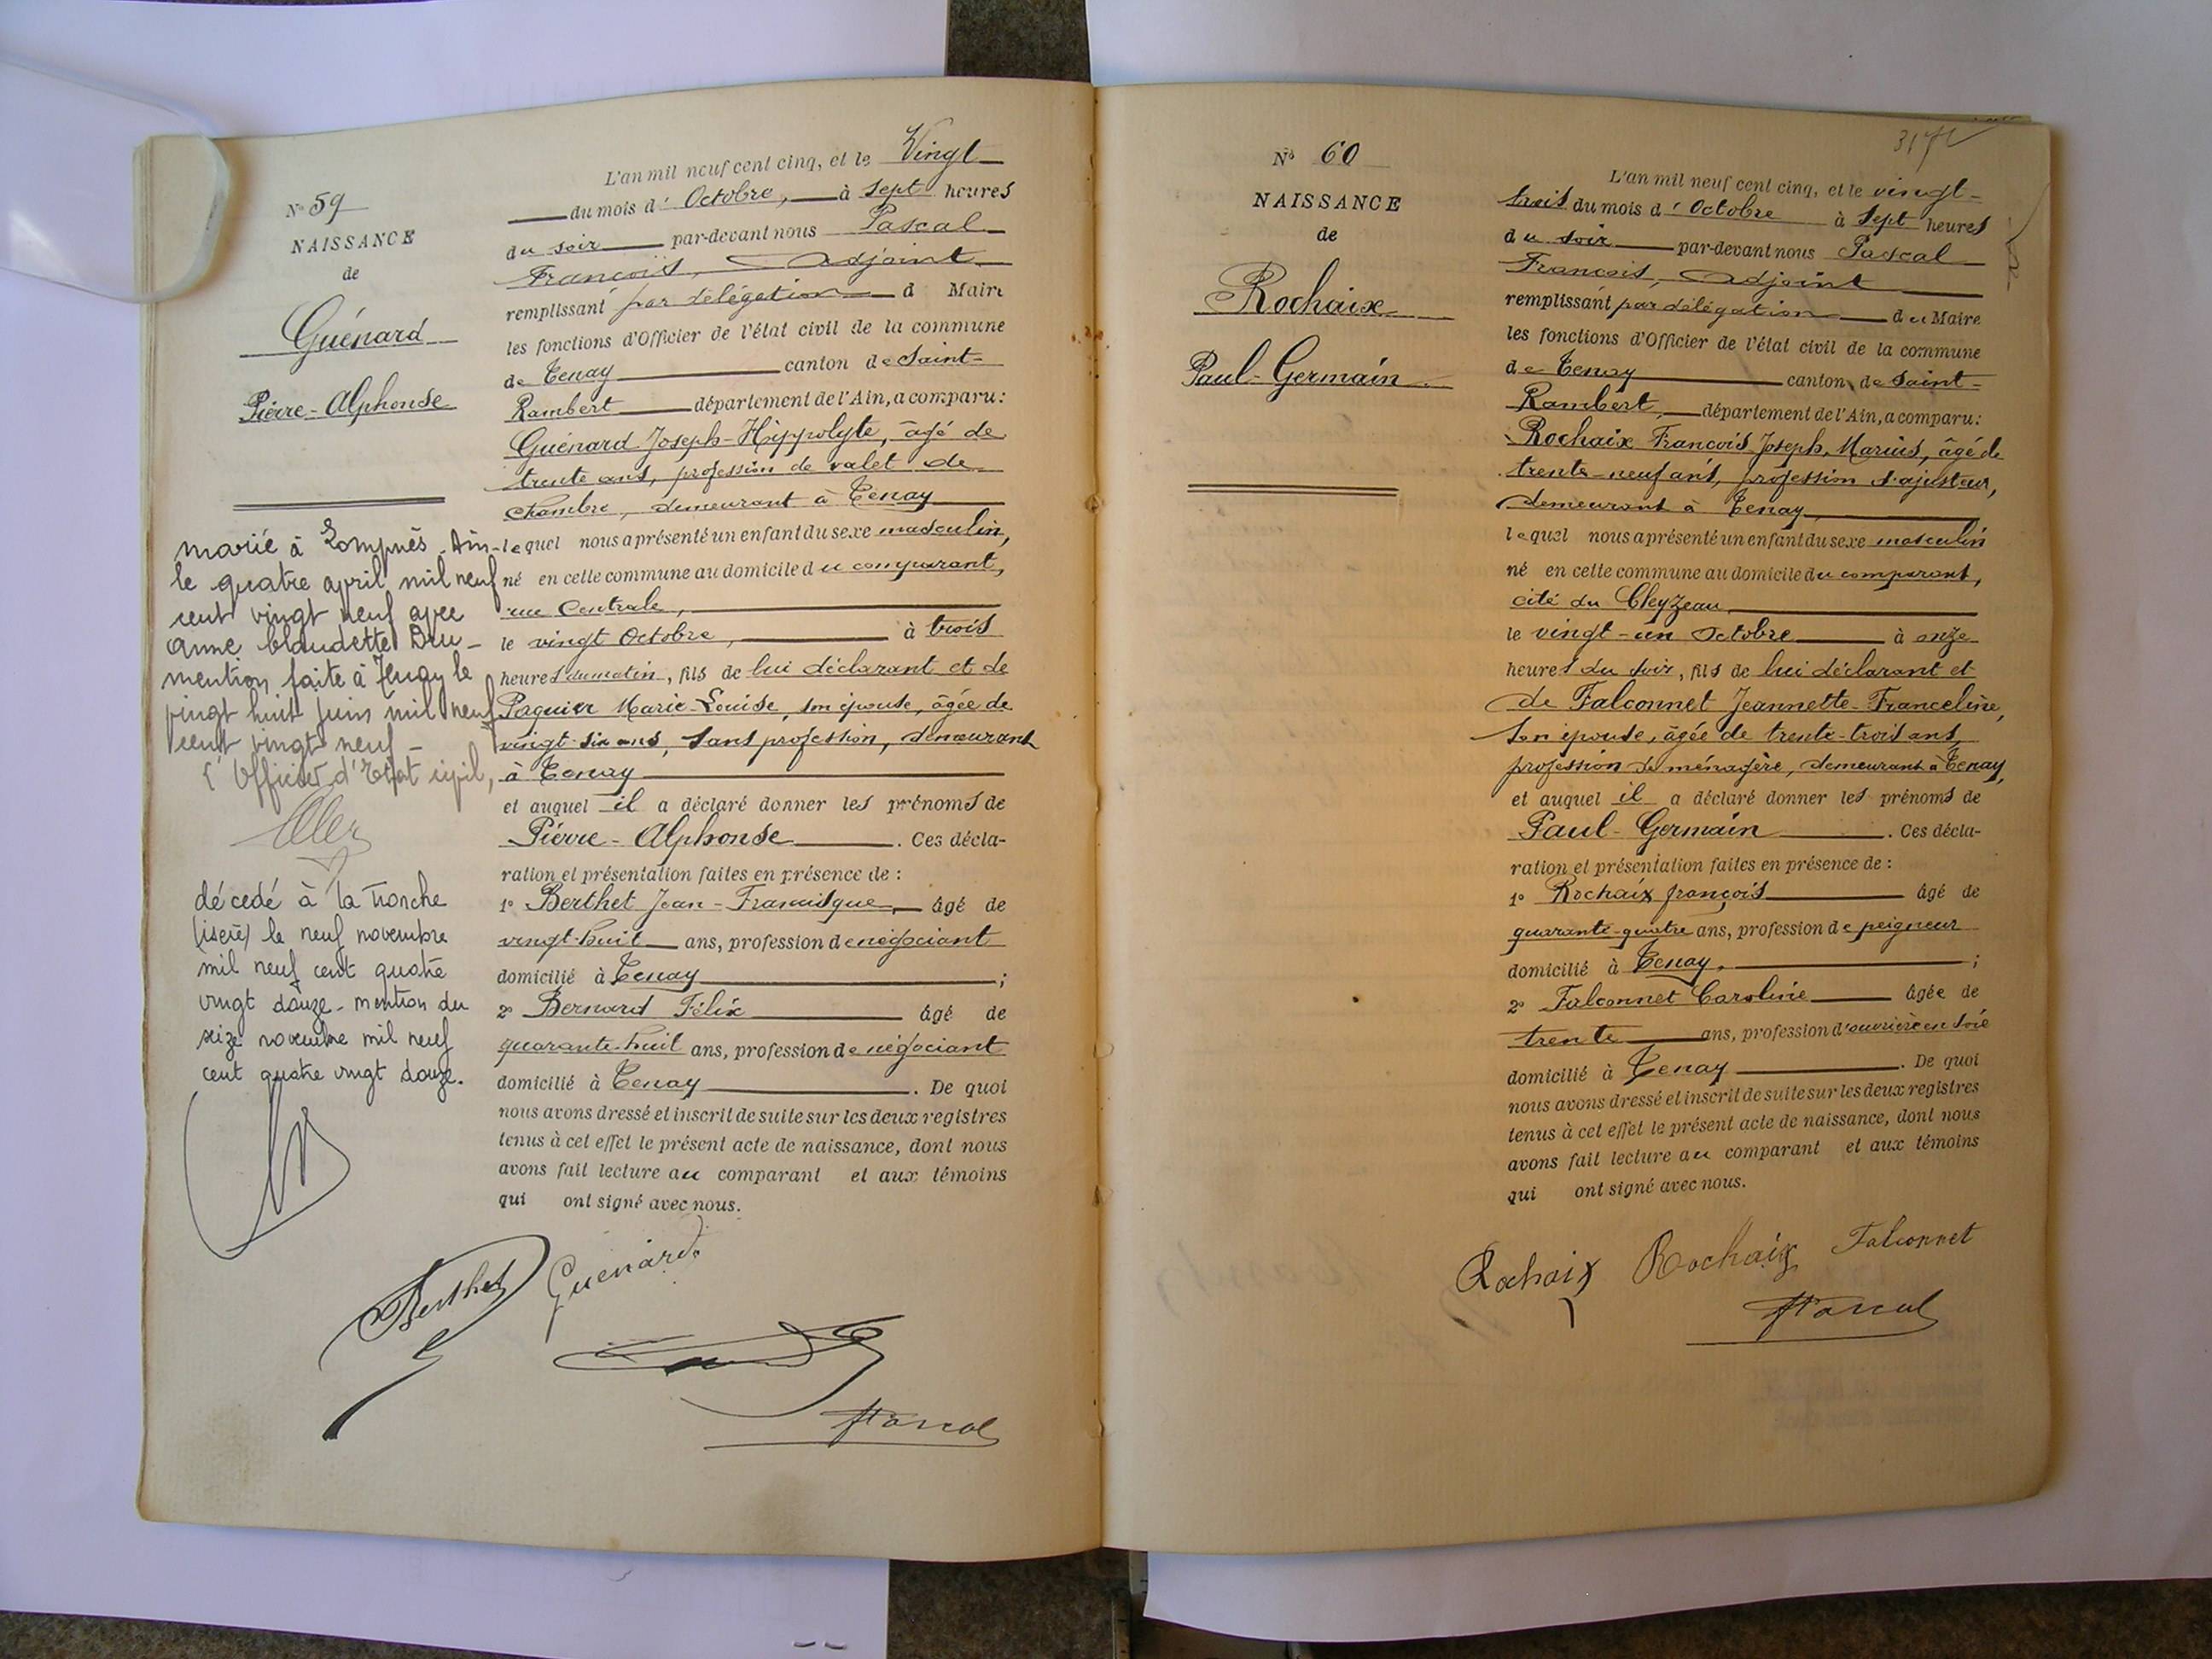 N° 59
NAISSANCE
de
Guénard
Pierre-Alphonse
marié à Lompnès-Ain-
le quatre avril mil neuf
cent vingt neuf avec
Anne Claudette Dru-
mention faite à Tenay le
vingt huit juin mil neuf
cent vingt neuf -
L'Officier d'Etat civil,
décedé à La Tronche
(isère) le neuf novembre
mil neuf cent quatre
vingt douze - mention du
seize novembre mil neuf
cent quatre vingt douze.
L'an mil neuf cent cinq, et le Vingt
du mois d'Octobre, à sept heures
du soir par-devant nous Pascal
François, Adjoint
remplissant par délégation d Maire
les fonctions d'Officier de l'état civil de la commune
de Tenay canton de Saint-
Rambert département de l'Ain, a comparu:
Guénard Joseph-Hippolyte, âgé de
trente ans, profession de valet de
chambre, demeurant à Tenay
lequel nous a présenté un enfant du sexe masculin,
né en cette commune au domicile du comparant,
rue Centrale,
le vingt Octobre, à trois
heures du matin, fils de lui déclarant et de
Marie-Louise, son épouse, âgée de
vingt-six ans, sans profession, demeurant
à Tenay
et auquel il a déclaré donner les prénoms de
Pierre-Alphonse. Ces décla-
ration et présentation faites en présence de :
1° Berthet Jean-Francisque, âgé de
vingt-huit ans, profession de négociant
domicilié à Tenay ;
2° Bernard Félix âgé de
quarante-huit ans, profession de négociant
domicilié à Tenay. De quoi
nous avons dressé et inscrit de suite sur les deux registres
tenus à cet effet le présent acte de naissance, dont nous
avons fait lecture au comparant et aux témoins
qui ont signé avec nous.
Berthet Guenard
Pascal
N° 60
NAISSANCE
de
Rochaix
Paul-Germain
L'an mil neuf cent cinq, et le vingt-
trois du mois d'Octobre à sept heures
du soir par-devant nous Pascal
François, Adjoint
remplissant par délégation du Maire
les fonctions d'Officier de l'état civil de la commune
de Tenay canton de Saint-
Rambert, département de l'Ain, a comparu:
Rochaix François Joseph, Marius, âgé de
trente-neuf ans, profession d'ajusteur,
demeurant à Tenay,
lequel nous a présenté un enfant du sexe masculin
né en cette commune au domicile du comparant,
cité du Cleyzeau,
le vingt-un Octobre à onze
heures du soir, fils de lui déclarant et
de Falconnet Jeannette-Franceline,
son épouse, âgée de trente-trois ans,
profession de ménagère, demeurant à Tenay,
et auquel il a déclaré donner les prénoms de
Paul-Germain. Ces décla-
ration et présentation faites en présence de :
1° Rochaix françois âgé de
quarante-quatre ans, profession de peigneur
domicilié à Tenay, ;
2° Falconnet Caroline âgée de
trente ans, profession d'ouvrière en soie
domicilié à Tenay. De quoi
nous avons dressé et inscrit de suite sur les deux registres
tenus à cet effet le présent acte de naissance, dont nous
avons fait lecture au comparant et aux témoins
qui ont signé avec nous.
Rochaix Rochaix Falconnet
Pascal